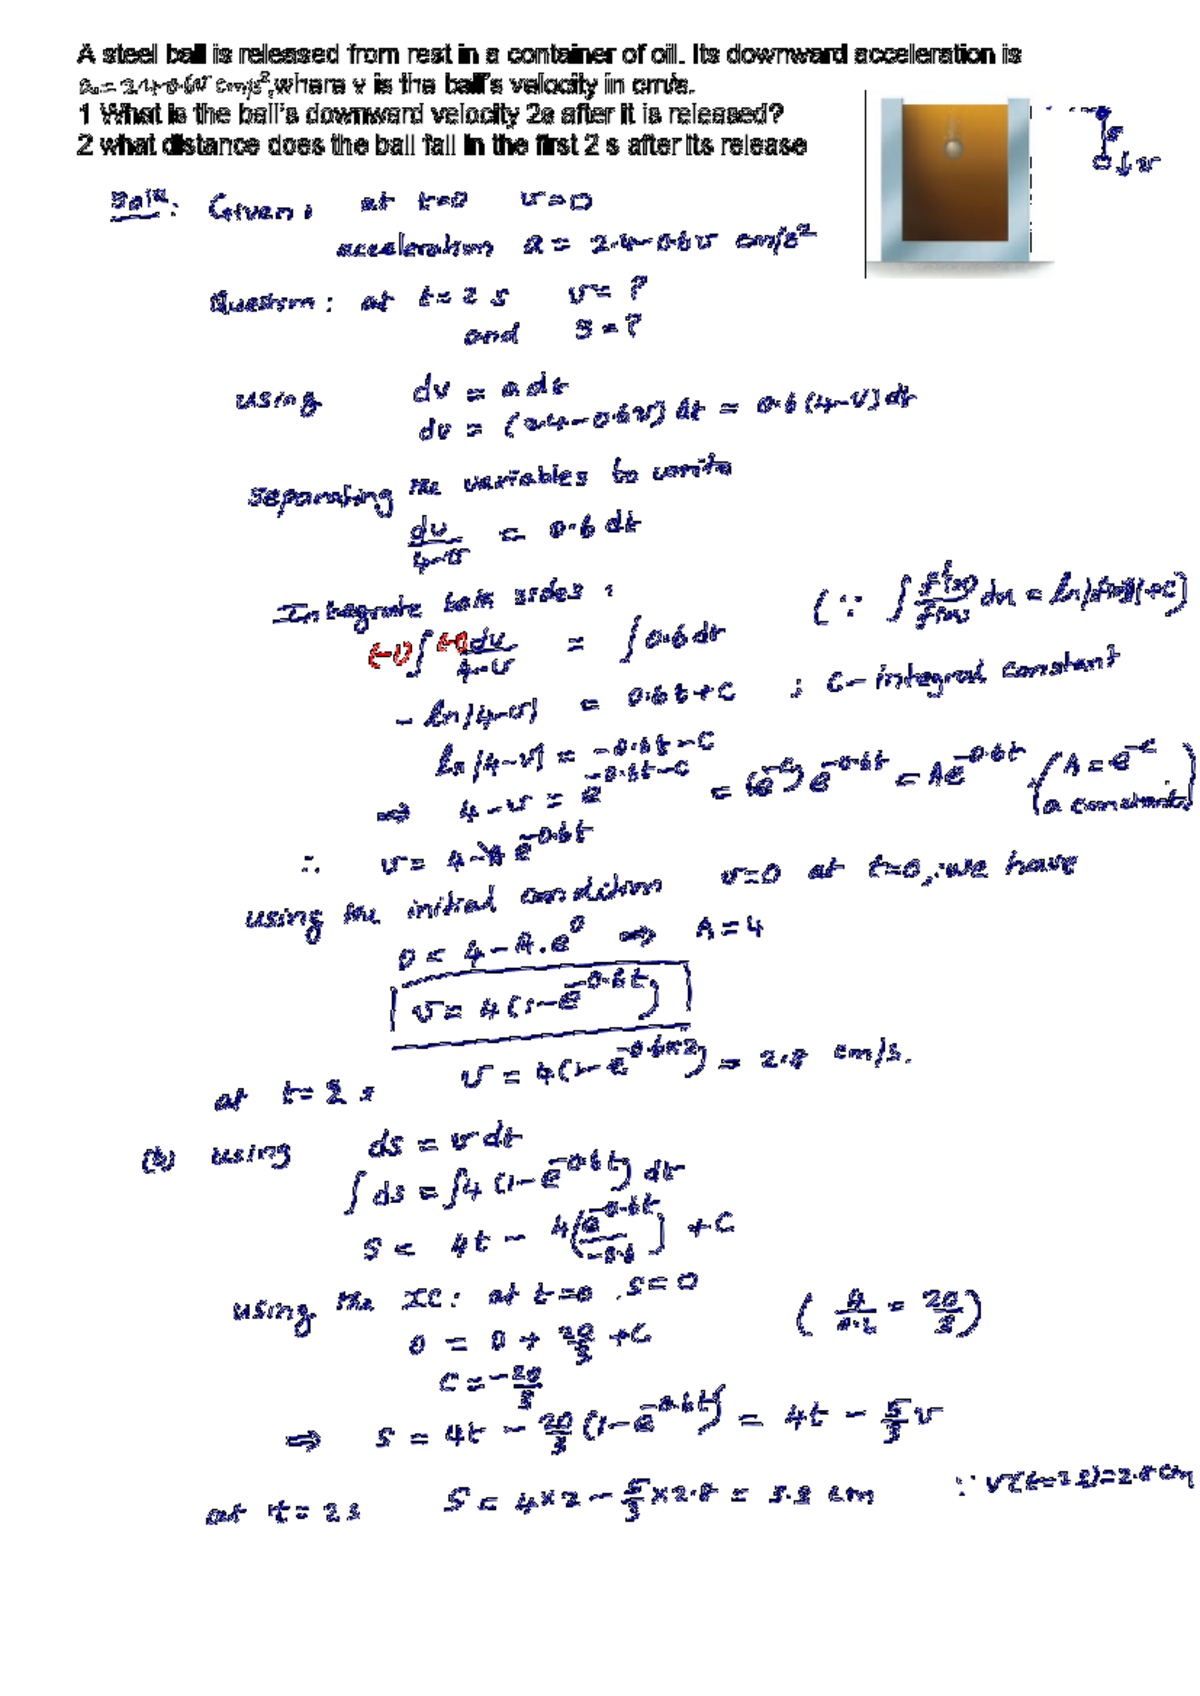 A steel ball is released from rest in a container of oil. Its downward acceleration is
a = 2.4-0.6v cm/s², where v is the ball's velocity in cm/s.
1 What is the ball's downward velocity 2s after it is released?
2 what distance does the ball fall in the first 2 s after its release
s
v
Soln: Given: at t=0 v=0
acceleration a = 2.4-0.6v cm/s²
Question: at t=2 s v=?
and s=?
using dv = a dt
dv = (2.4-0.6v) dt = 0.6(4-v) dt
Separating the variables to write
dv/(4-v) = 0.6 dt
Integrate both sides:
(-1)∫ (-1)dv/(4-v) = ∫0.6dt (∵ ∫ f'(x)/f(x) dx = ln|f(x)|+C)
-ln|4-v| = 0.6t+C ; C- integral constant
ln|4-v| = -0.6t-C
⇒ 4-v = e^(-0.6t-C) = (e^-C) e^-0.6t = Ae^-0.6t (A = e^-C a constant)
∴ v = 4-A e^-0.6t
using the initial condition v=0 at t=0, we have
0 = 4-A.e^0 ⇒ A=4
v = 4(1-e^-0.6t)
at t=2 s v = 4(1-e^-0.6×2) = 2.8 cm/s.
(b) using ds = v dt
∫ds = ∫4(1-e^-0.6t) dt
s = 4t - 4(e^-0.6t/-0.6) + C
using the IC: at t=0, s=0
0 = 0 + 20/3 + C (4/0.6 = 20/3)
C = -20/3
⇒ s = 4t - 20/3 (1-e^-0.6t) = 4t - 5/3 v
at t=2s S = 4×2 - 5/3 ×2.8 = 3.3 cm ∵ v(t=2s)=2.8 cm